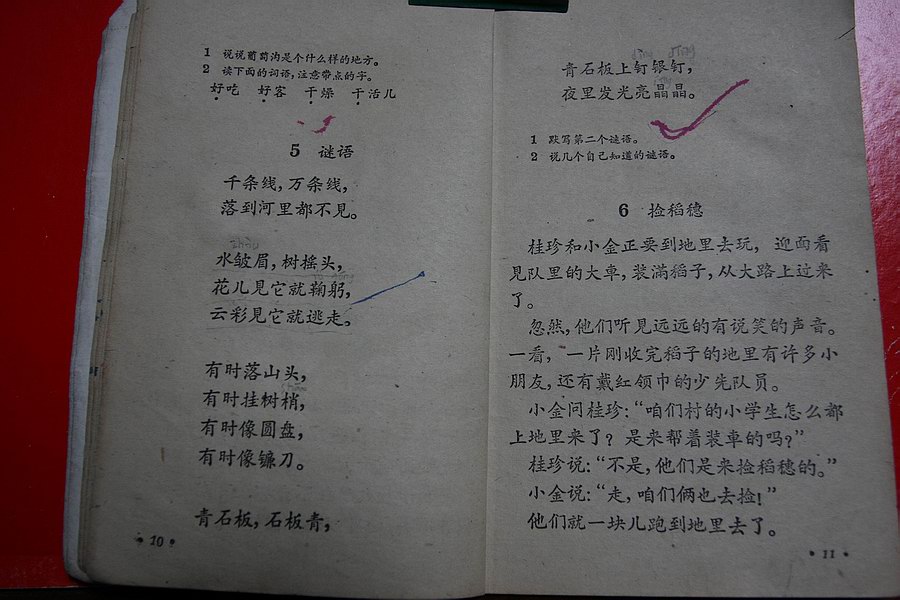 1 说说葡萄沟是个什么样的地方。
2 读下面的词语,注意带点的字。
好吃 好客 干燥 干活儿
5 谜语
千条线,万条线,
落到河里都不見。
zhòu
水皱眉,树摇头,
花儿見它就鞠躬,
云彩見它就逃走。
有时落山头,
有时挂树梢,
有时像圆盘,
有时像镰刀。
青石板,石板青,
· 10 ·
青石板上钉银钉,
夜里发光亮晶晶。
1 默写第二个谜语。
2 说几个自己知道的谜语。
6 捡稻穗
桂珍和小金正要到地里去玩, 迎面看
見队里的大車,装滿稻子,从大路上过来
了。
忽然,他们听見远远的有说笑的声音。
一看, 一片刚收完稻子的地里有许多小
朋友,还有戴红领巾的少先队员。
小金问桂珍:“咱们村的小学生怎么都
上地里来了? 是来帮着装車的吗?”
桂珍说:“不是,他们是来捡稻穗的。”
小金说:“走,咱们俩也去捡!”
他们就一块儿跑到地里去了。
· 11 ·